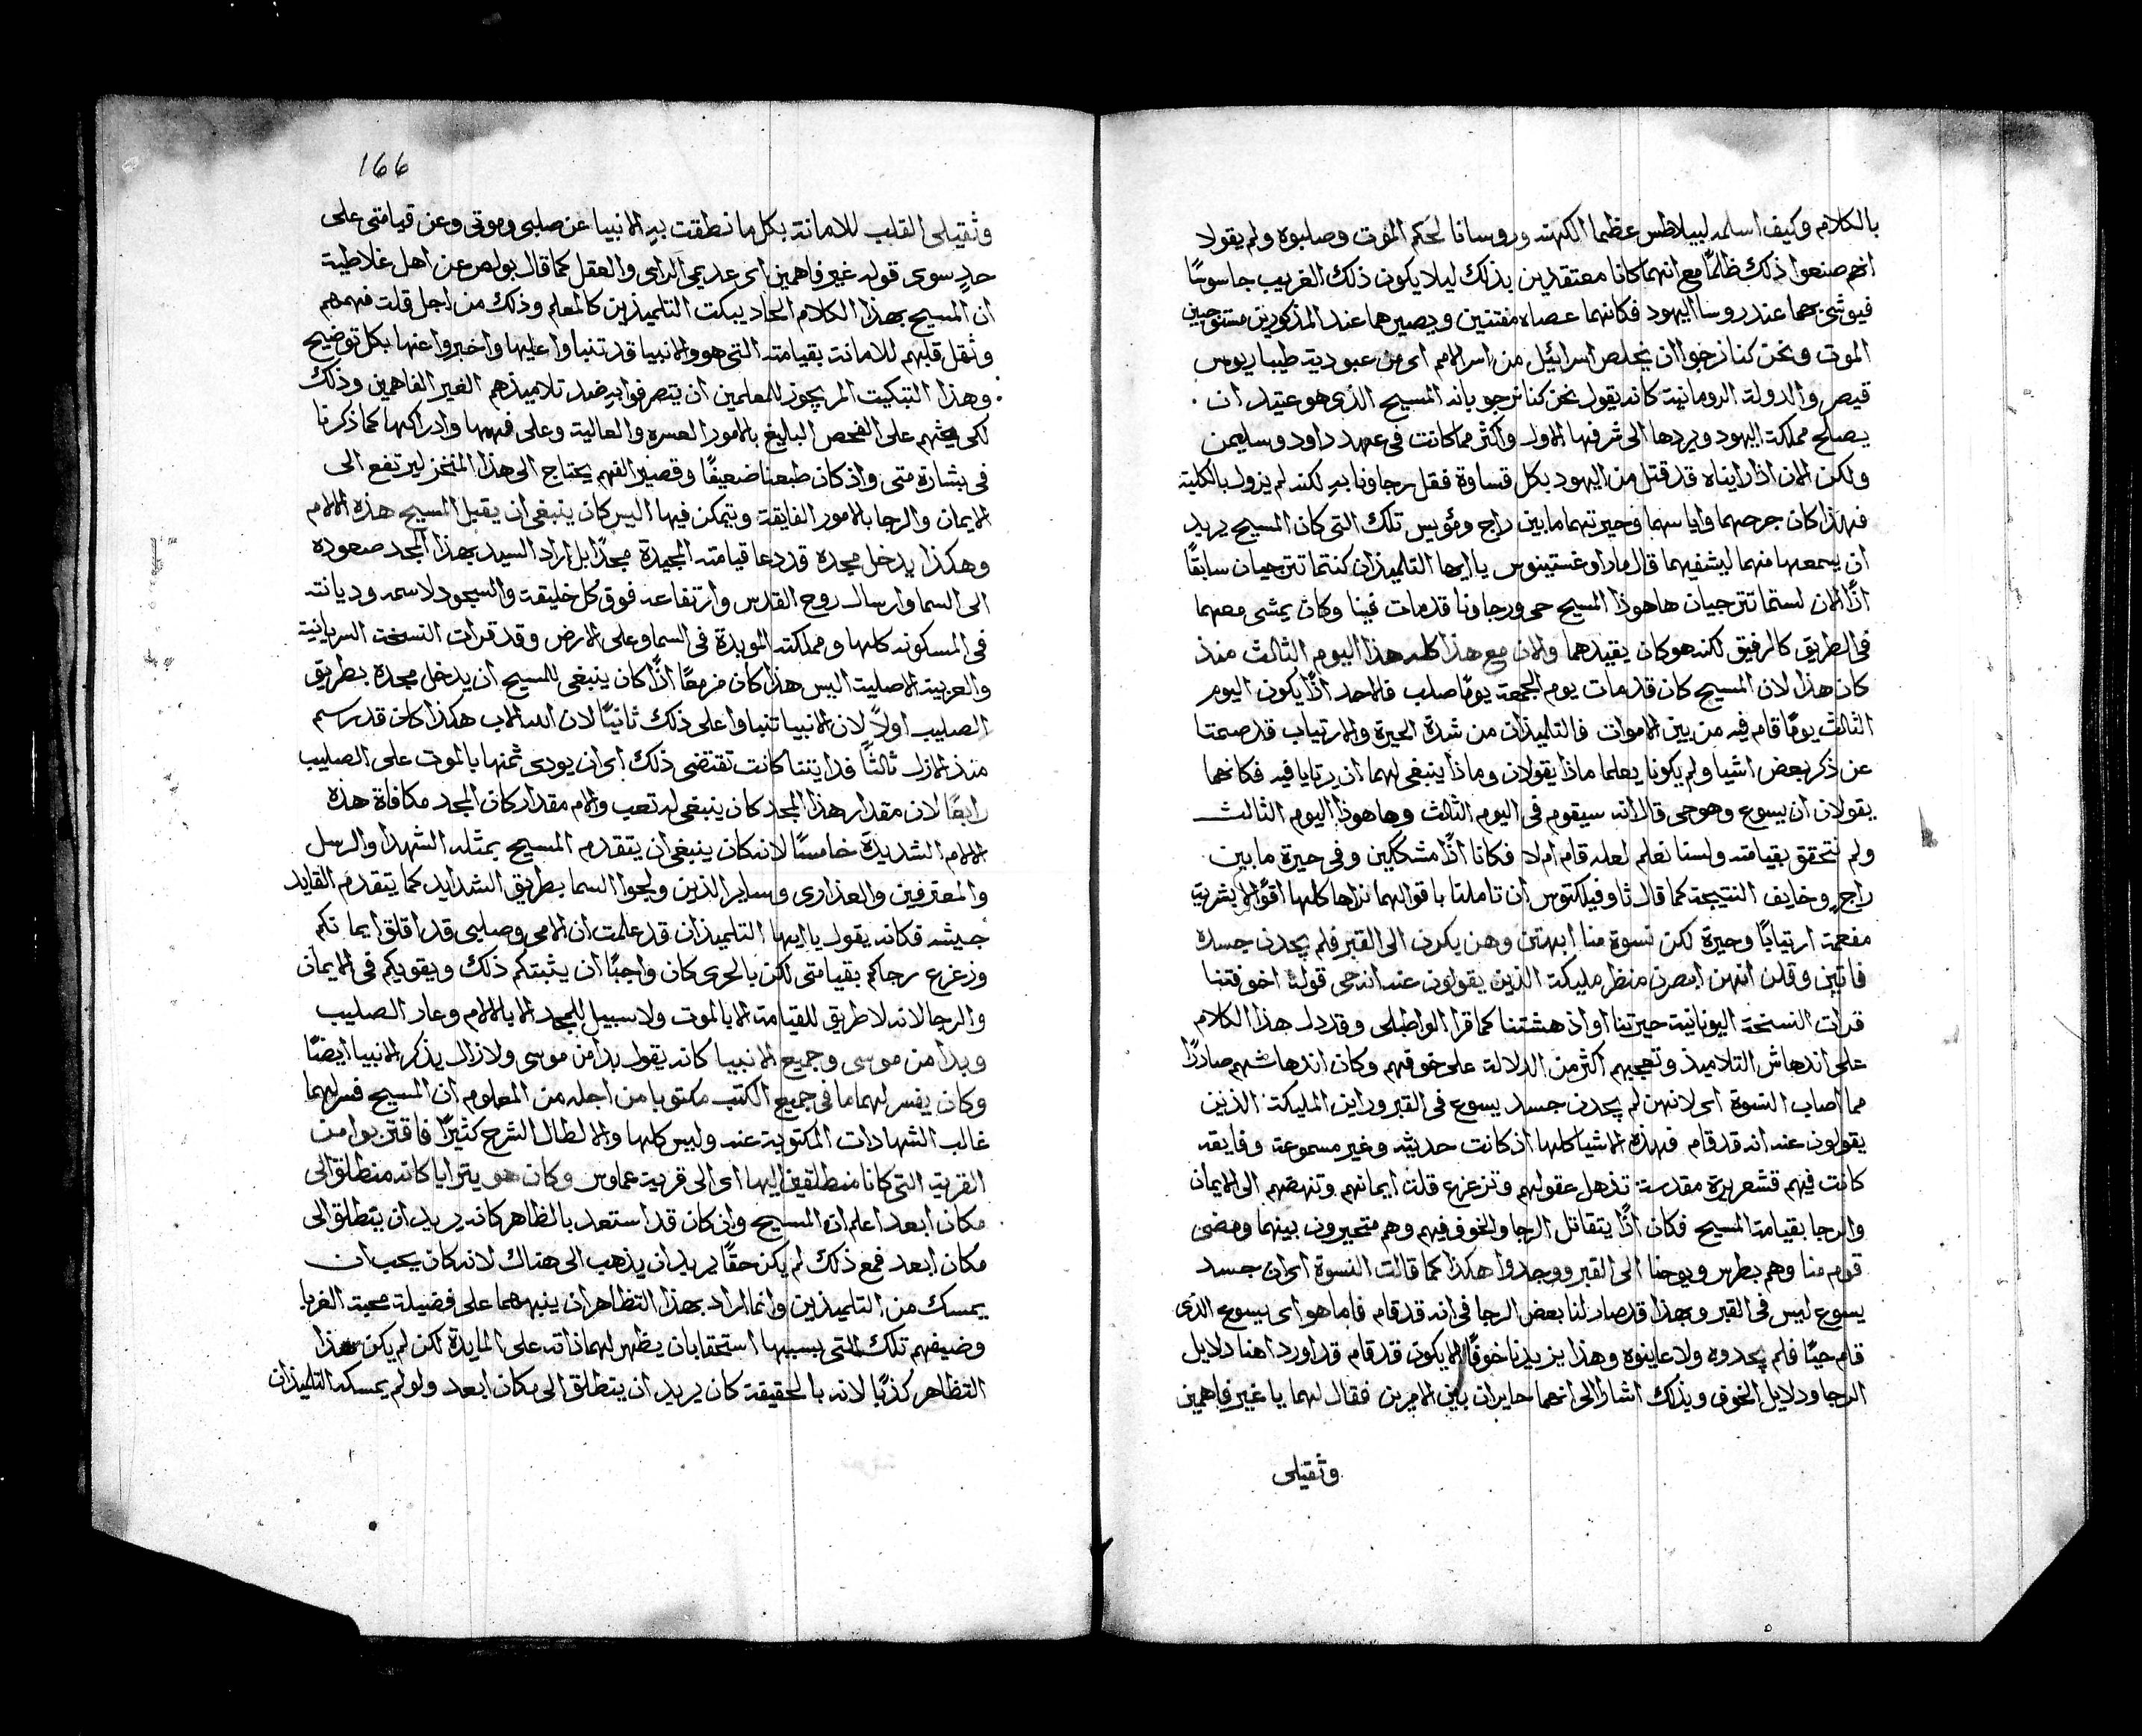 بالكلام وكيف اسلمه لبيلاطس عظما الكهنه وروسانا لحكم الموت وصلبوه ولم يقولا
انهم صنعوا ذلك ظلمًا مع انهما كانا معتقدين بذلك ليلا يكون ذلك الغريب جاسوسًا
فيوشى بهما عند روسا اليهود فكانهما عصاه مفتنين ويصيرهما عند المذكورين مستوجبين
الموت ونحن كنا نرجوا ان يخلص اسرائيل من اسر الامم اى من عبودية طيباريوس
قيصر والدولة الرومانية كانه يقول نحن كنا نرجو بانه المسيح الذى هو عتيد ان .
يصلح مملكة اليهود ويردها الى شرفها الاول واكثر مما كانت فى عهد داود وسليمن
ولكن الان اذ رايناه قد قتل من اليهود بكل قساوة فقل رجاونا به لكنه لم يزول بالكلية
فهذا كان جرحهما واياسهما وحيرتهما مابين راج ومؤيس تلك التى كان المسيح يريد
ان يسمعها منهما ليشفيهما قال مار اوغستينوس يا ايها التلميذان كنتما تترجيان سابقًا
اذًا الان لستما تترجيان هاهوذا المسيح حى ورجاونا قد مات فينا وكان يمشى معهما
فى الطريق كالرفيق لكنه هو كان يقيدهما والان مع هذا كله هذا اليوم الثالث منذ
كان هذا لان المسيح كان قد مات يوم الجمعة يومًا صلب فالاحد اذًا يكون اليوم
الثالث يومًا قام فيه من بين الاموات فالتلميذان من شدة الحيرة والارتياب قد صمتا
عن ذكر بعض اشيا ولم يكونا يعلما ماذا يقولان وماذا ينبغى لهما ان يرتايا فيه فكانهما
يقولان ان يسوع وهو حى قال انه سيقوم فى اليوم الثالث وها هوذا اليوم الثالث
ولم نتحقق بقيامته ولسنا نعلم لعله قام ام لا فكانا اذًا مشككين وفى حيرة مابين
راجٍ وخايف النتيجة كما قال ثاوفيلكتوس ان تاملنا باقوالهما نراها كلها اقوالًا بشرية
مفعمة ارتيابًا وحيرة لكن نسوة منا ابهتن وهن بكرن الى القبر فلم يجدن جسده
فاتين وقلن انهن ابصرن منظر مليكة الذين يقولون عنه انه حى قوله اخوفتنا
قرات النسخة اليونانية حيرتنا او اذهشتنا كما قرا الواطبلى وقد دل هذا الكلام
على اندهاش التلاميذ وتعجبهم اكثر من الدلالة على خوفهم وكان اندهاشهم صادرًا
مما اصاب النسوة اى لانهن لم يجدن جسد يسوع فى القبر وراين المليكة الذين
يقولون عنه انه قد قام فهذه الاشيا كلها اذ كانت حديثه وغير مسموعة وفايقه
كانت فيهم قشعريرة مقدسة تذهل عقولهم وتزعزع قلت ايمانهم وتنهضهم الى الايمان
والرجا بقيامة المسيح فكان اذًا يتقاتل الرجا والخوف فيهم وهم متحيرون بينهما ومضى
قوم منا وهم بطرس ويوحنا الى القبر ووجدوا هكذا كما قالت النسوة اى ان جسد
يسوع ليس فى القبر وبهذا قد صار لنا بعض الرجا فى انه قد قام فاما هو اى يسوع الذى
قام حيًا فلم يجدوه ولا عاينوه وهذا يزيدنا خوفًا الا يكون قد قام قد اوردا هنا دلايل
الرجا ودلايل الخوف وبذلك اشارا الى انهما حايران بين الامرين فقال لهما يا غير فاهمين
وثقيلى
166
وثقيلى القلب للامانة بكل ما نطقت به الانبيا عن صلبى وموتى وعن قيامتى على
حدٍ سوى قوله غير فاهمين اى عديمى الراى والعقل كما قال بولص عن اهل غلاطية
ان المسيح بهذا الكلام الحاد يبكت التلميذين كالمعلم وذلك من اجل قلت فهمهم
وثقل قلبهم للامانة بقيامته التى هو والانبيا قد تنباوا عليها واخبروا عنها بكل توضيح
. وهذا التبكيت المر يجوز للمعلمين ان يتصرفوا به ضد تلاميذهم الغير الفاهمين وذلك
لكى يحثهم على الفحص البليغ بالامور العسره والعالية وعلى فهمها وادراكها كما ذكرنا
فى بشارة متى واذ كان طبعنا ضعيفًا وقصير الفهم يحتاج الى هذا المنخز ليرتفع الى
الايمان والرجا بالامور الفايقة ويتمكن فيها اليس كان ينبغى ان يقبل المسيح هذه الالام
وهكذا يدخل مجده قد دعا قيامته المجيدة مجدًا بل اراد السيد بهذا المجد صعوده
الى السما وارسال روح القدس وارتفاعه فوق كل خليقة والسجود لاسمه وديانته
فى المسكونه كلها ومملكته الموبدة فى السما وعلى الارض وقد قرات النسخة السريانية
والعربية الاصلية اليس هذا كان مزمعًا اذًا كان ينبغى للمسيح ان يدخل مجده بطريق
الصليب اولًا لان الانبيا تنباوا على ذلك ثانيًا لان الله الاب هكذا كان قد رسم
منذ الازل ثالثًا فدايتنا كانت تقتضى ذلك اى ان يودى ثمنها بالموت على الصليب
رابعًا لان مقدار هذا المجد كان ينبغى له تعب والام مقدار كان المجد مكافاة هذه
الالام الشديدة خامسًا لانه كان ينبغى ان يتقدم المسيح بمثله الشهدا والرسل
والمعترفين والعذارى وساير الذين ولجوا السما بطريق الشدايد كما يتقدم القايد
جيشه فكانه يقول يا ايها التلميذان قد علمت ان الامى وصلبى قد اقلق ايمانكم
وزعزع رجاكم بقيامتى لكن بالحرى كان واجبًا ان يثبتكم ذلك ويقويكم فى الايمان
والرجا لانه لا طريق للقيامة الا بالموت ولا سبيل للمجد الا بالالام وعار الصليب
وبدا من موسى وجميع الانبيا كانه يقول بدا من موسى ولا زال يذكر الانبيا ايضًا
وكان يفسر لهما ما فى جميع الكتب مكتوبا من اجله من المعلوم ان المسيح فسر لهما
غالب الشهادات المكتوبة عنه وليس كلها والا لطال الشرح كثيرًا فاقتربوا من
القرية التى كانا منطلقين اليها اى الى قرية عماوس وكان هو يترايا كانه منطلق الى
مكان ابعد اعلم ان المسيح وان كان قد استعد بالظاهر كانه يريد ان ينطلق الى
مكان ابعد فمع ذلك لم يكن حقًا يريد ان يذهب الى هناك لانه كان يحب ان
يمسك من التلميذين وانما اراد بهذا التظاهر ان ينبههما على فضيلة محبة الغربا
وضيفهم تلك التى بسببها استحقا بان يظهر لهما ذاته على المايدة لكن لم يكن هذا
التظاهر كذبًا لانه بالحقيقة كان يريد ان ينطلق الى مكان ابعد ولو لم يمسكه التلميذان